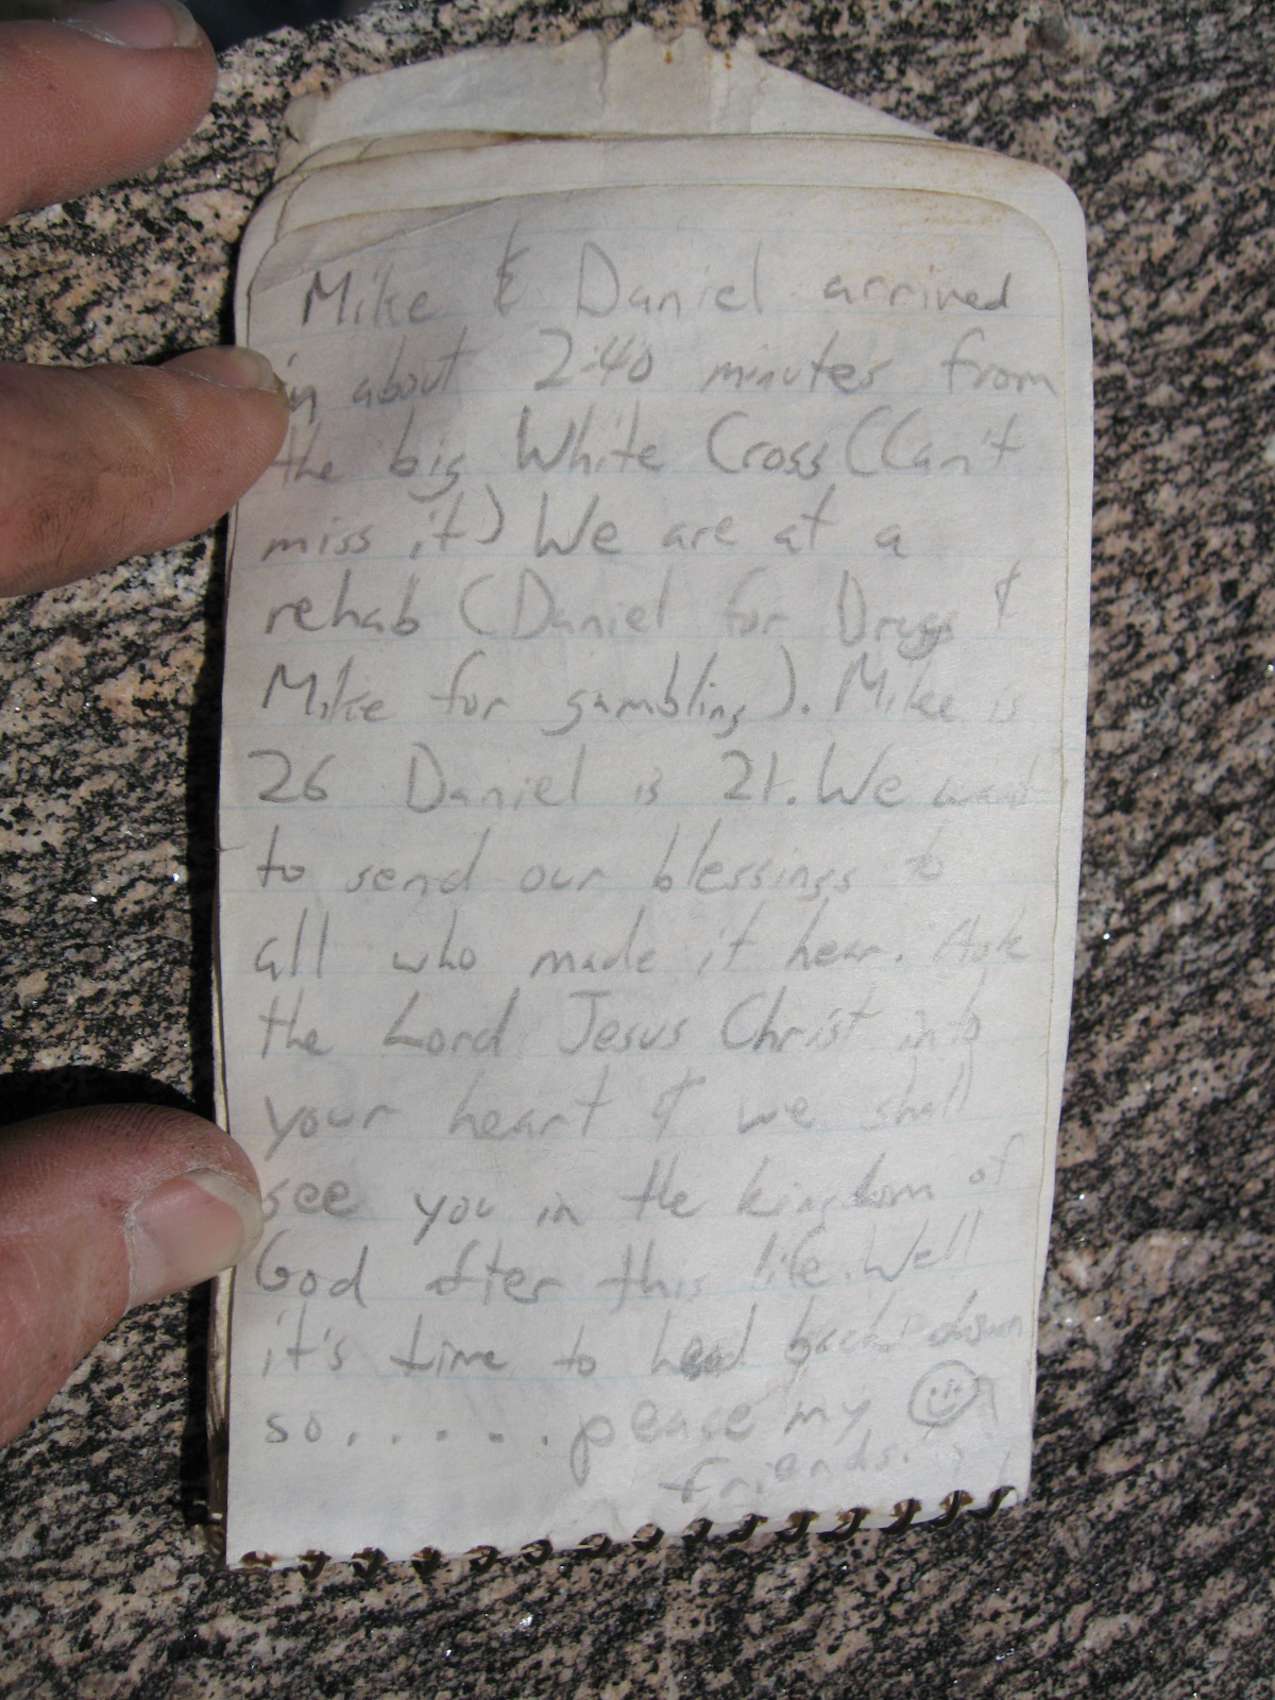 Mike & Daniel arrived
in about 2:40 minutes from
the big White Cross (Can't
miss it) We are at a
rehab (Daniel for Drugs &
Mike for gambling). Mike is
26 Daniel is 21. We want
to send our blessings to
all who made it hear. Ask
the Lord Jesus Christ into
your heart & we shall
see you in the kingdom of
God after this life. Well
it's time to head back down
so . . . . . pease my
friends.